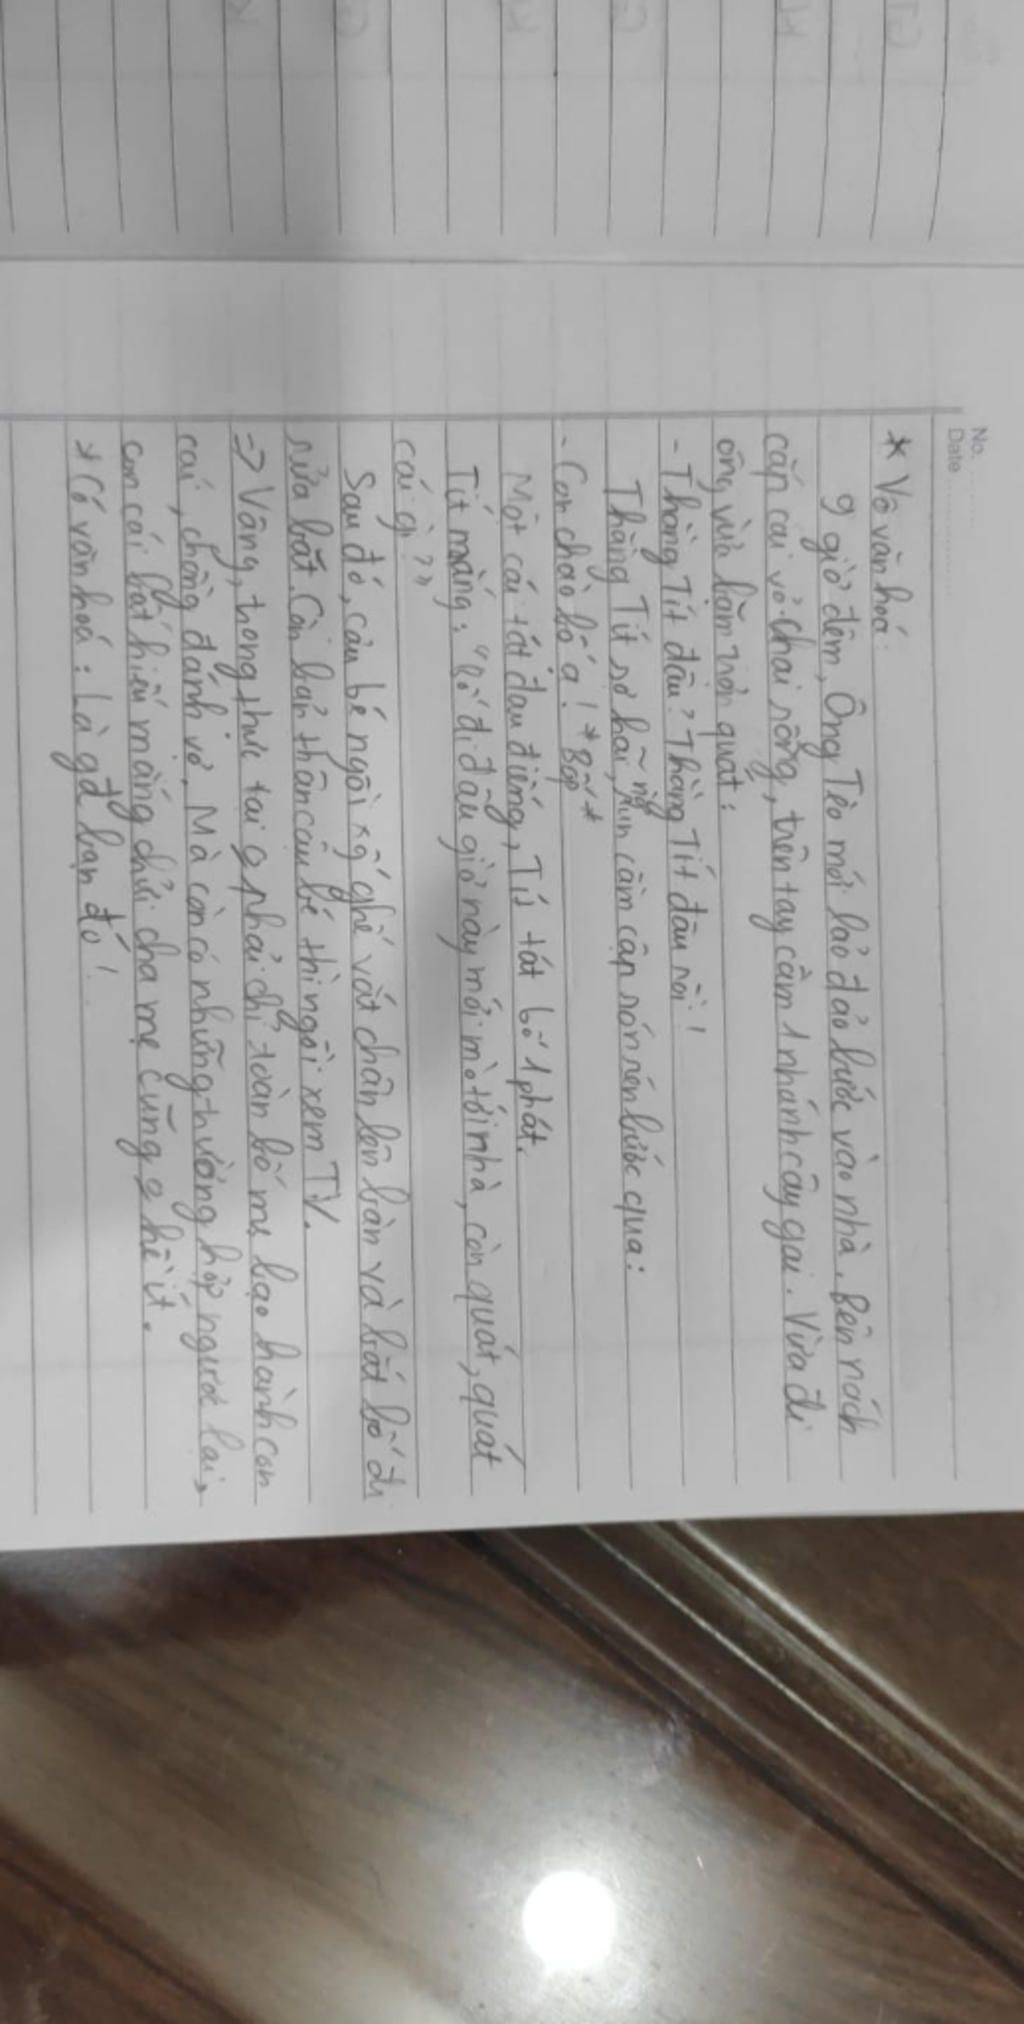 No.
Date
* Vô văn hoá:
9 giờ đêm, Ông Tèo mới lảo đảo bước vào nhà. Bên nách
cắp cái vỏ chai rỗng, trên tay cầm 1 nhánh cây gai. Vừa đi
ông vừa lầm quát:
- Thằng Tít đâu? Thằng Tít đâu rồi!
Thằng Tít sợ hãi, run cầm cập rón rén bước qua:
- Con chào bố ạ! *Bốp*
Một cái tát đau điếng, Tít tát bố 1 phát.
Tít mắng: "Bố đi đâu giờ này mới mò tới nhà, còn quát, quát
cái gì?"
Sau đó, cậu bé ngồi xg ghế vắt chân lên bàn và bắt bố đi
rửa bát. Còn bản thân cậu bé thì ngồi xem TV.
=> Vâng, trong thực tại phải chỉ toàn bố mẹ bạo hành con
cái, chồng đánh vợ. Mà còn có những trường hợp ngược lại,
con cái bất hiếu mắng chửi cha mẹ cũng hề ít.
* Có văn hoá: Là gđ bạn đó!